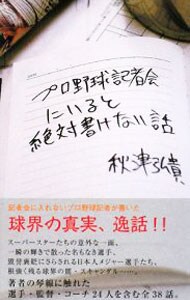 プロ野球記者会
にいると
絶対書けない話
秋津弘貴
記者会に入れないプロ野球記者が書いた
球界の真実、逸話!!
スーパースターたちの意外な一面、
一瞬の輝きで散ったおもなき選手、
罵詈雑言にさらされる日本人メジャー選手たち、
根強く残る球界の闇・スキャンダル……。
著者の琴線に触れた
選手・監督・コーチ24人を含む全38話。